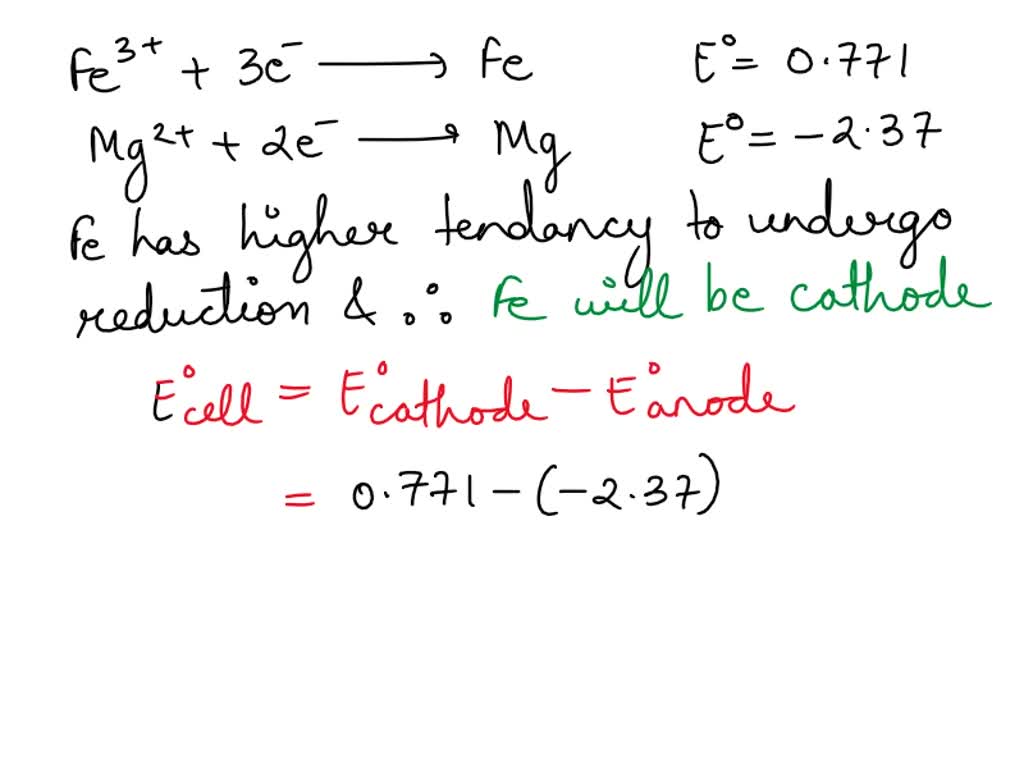 Fe³⁺ + 3e⁻ ⟶ Fe E° = 0.771
Mg²⁺ + 2e⁻ ⟶ Mg E° = -2.37
Fe has higher tendancy to undergo
reduction & ∴ Fe will be cathode
E°cell = E°cathode - E°anode
= 0.771 - (-2.37)